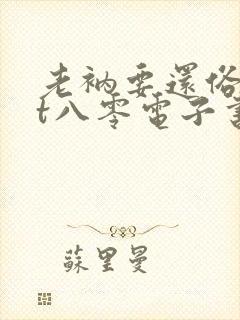 老衲要還俗
t八零電子書
蘇里曼